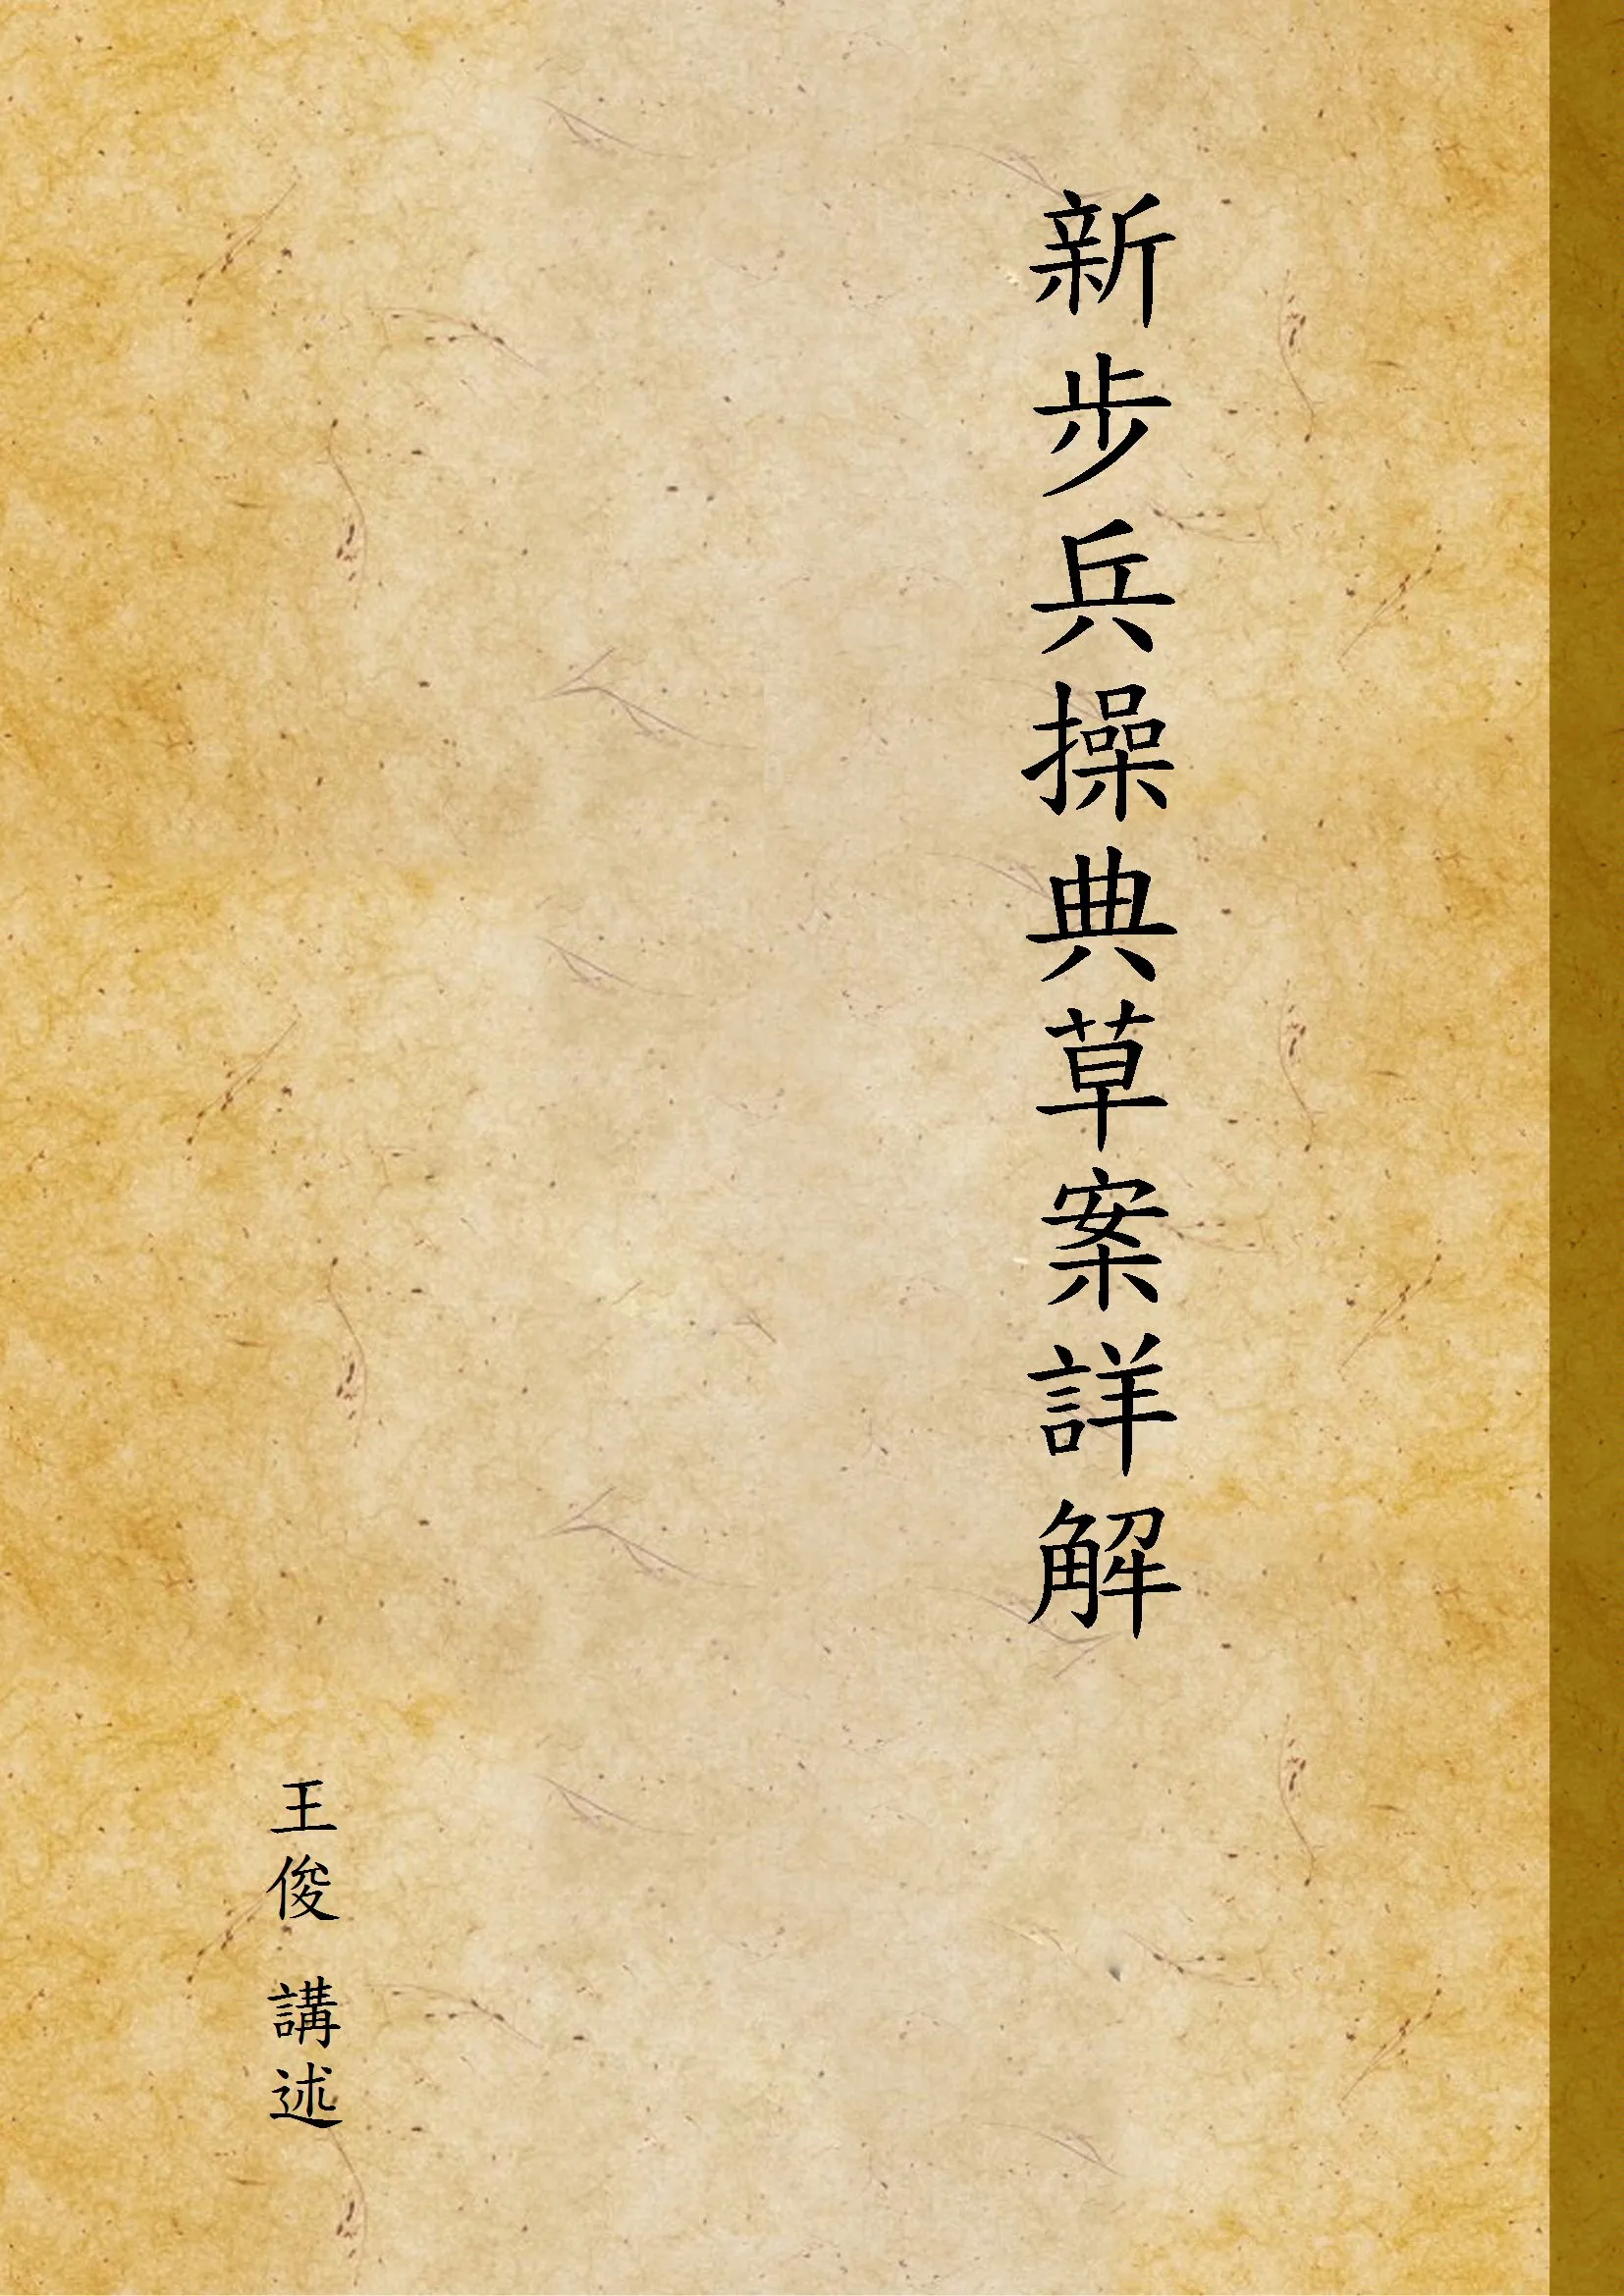 新步兵操典草案詳解
王俊 講述